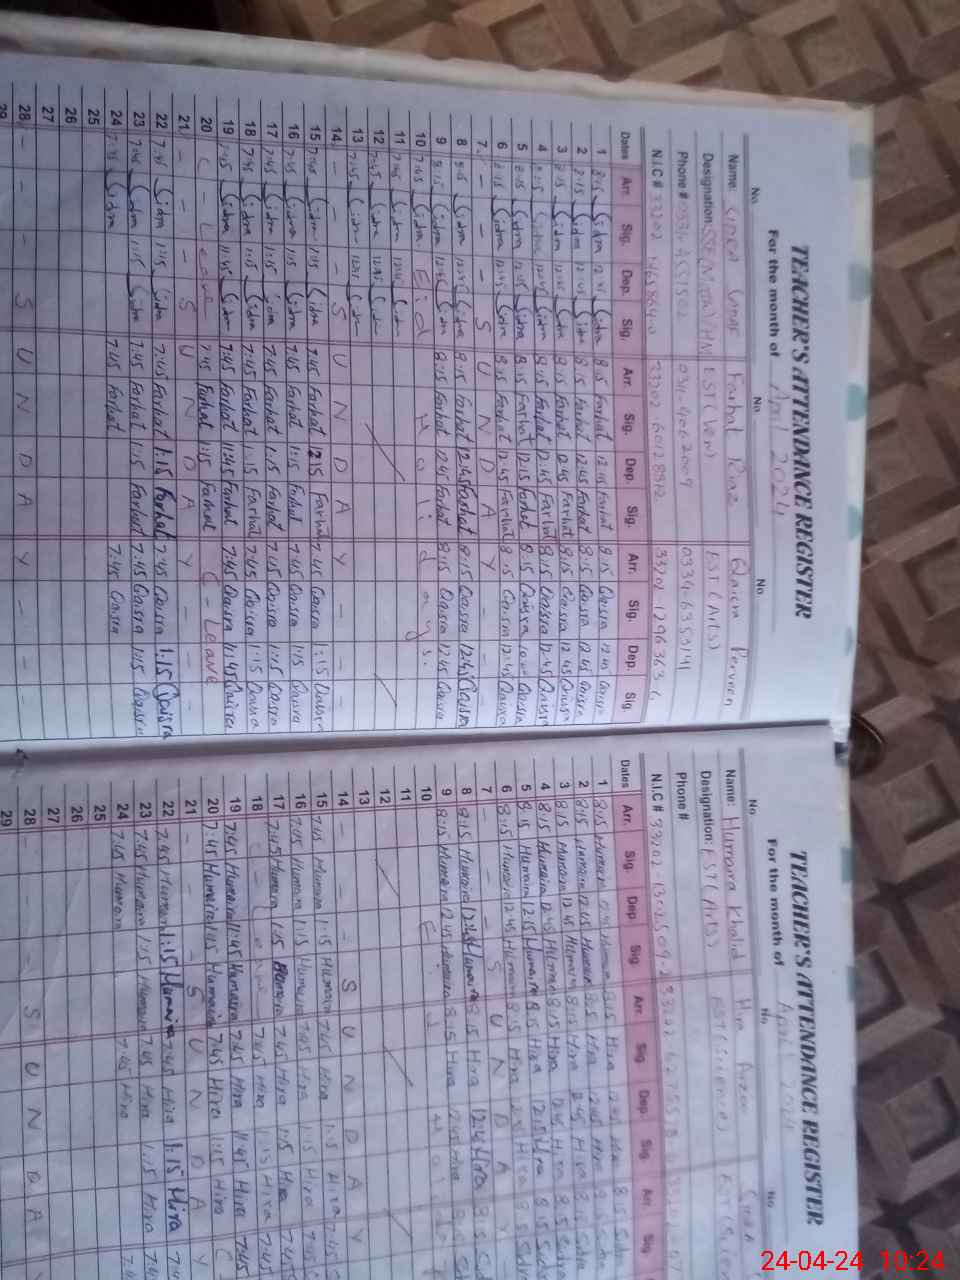 TEACHER'S ATTENDANCE REGISTER
For the month of April 2024
No. No. No
Name: Farhat Riaz Qaisra Perveen
Designation: EST (Arts)
Phone #
N.I.C #
Dates Arr. Sig. Dep. Sig. Arr. Sig. Dep. Sig. Arr. Sig. Dep. Sig.
1 8:15 Sidra Sidra 8:15 Farhat Farhat 8:15 Qaisra 12:45 Qaisra
2 8:15 Sidra 12:45 Sidra 8:15 Farhat 12:45 Farhat 8:15 Qaisra 12:45 Qaisra
3 8:15 Sidra 12:45 Sidra 8:15 Farhat 12:45 Farhat 8:15 Qaisra 12:45 Qaisra
4 8:15 Sidra 12:45 Sidra 8:15 Farhat 12:45 Farhat 8:15 Qaisra 12:45 Qaisra
5 8:15 Sidra 12:15 Sidra 8:15 Farhat 12:15 Farhat 8:15 Qaisra Qaisra
6 8:15 Sidra 12:45 Sidra 8:15 Farhat 12:45 Farhat 8:15 Qaisra 12:45 Qaisra
7 - - - S U N D A Y - -
8 8:15 Sidra 12:45 Sidra 8:15 Farhat 12:45 Farhat 8:15 Qaisra 12:45 Qaisra
9 8:15 Sidra 12:45 Sidra 8:15 Farhat 12:45 Farhat 8:15 Qaisra 12:45 Qaisra
10 7:45 Sidra Eid Holidays.
11 7:45 Sidra 12:45 Sidra
12 7:45 Sidra 12:45 Sidra
13 7:45 Sidra Sidra
14 - - - S U N D A Y - - -
15 7:45 Sidra 1:15 Sidra 7:45 Farhat Farhat 7:45 Qaisra 1:15 Qaisra
16 7:45 Sidra 1:15 Sidra 7:45 Farhat 1:15 Farhat 7:45 Qaisra 1:15 Qaisra
17 7:45 Sidra 1:15 Sidra 7:45 Farhat 1:15 Farhat 7:45 Qaisra 1:15 Qaisra
18 7:45 Sidra 1:15 Sidra 7:45 Farhat 1:15 Farhat 7:45 Qaisra 1:15 Qaisra
19 7:45 Sidra 11:45 Sidra 7:45 Farhat 11:45 Farhat 7:45 Qaisra 11:45 Qaisra
20 C - Leave 7:45 Farhat 1:15 Farhat C - Leave
21 - - - S U N D A Y - - -
22 7:45 Sidra 1:15 Sidra 7:45 Farhat 1:15 Farhat 7:45 Qaisra 1:15 Qaisra
23 7:45 Sidra 1:15 Sidra 7:45 Farhat 1:15 Farhat 7:45 Qaisra 1:15 Qaisra
24 7:45 Sidra 7:45 Farhat 7:45 Qaisra
25
26
27
28 - - - S U N D A Y - - -
29
TEACHER'S ATTENDANCE REGISTER
For the month of April 2024
No. No. No
Name: Humaira Khalid Hira
Designation: EST (Arts) EST (Science)
Phone #
N.I.C #
Dates Arr. Sig. Dep. Sig. Arr. Sig. Dep. Sig. Arr. Sig.
1 8:15 Humaira Humaira 8:15 Hira 8:15
2 8:15 Humaira 12:45 Humaira 8:15 Hira 12:45 Hira 8:15
3 8:15 Humaira 12:45 Humaira 8:15 Hira 12:45 Hira 8:15
4 8:15 Humaira 12:45 Humaira 8:15 Hira 8:15
5 8:15 Humaira 12:15 Humaira 8:15 Hira Hira 8:15
6 8:15 Humaira 12:45 Humaira 8:15 Hira Hira 8:15
7 - - - S U N D A Y
8 8:15 Humaira 12:45 Humaira 8:15 Hira 12:45 Hira 8:15
9 8:15 Humaira 12:45 Humaira 8:15 Hira 12:45 Hira
10
11
12
13
14 - - - S U N D A Y
15 7:45 Humaira 1:15 Humaira 7:45 Hira 1:15 Hira 7:45
16 7:45 Humaira 1:15 Humaira 7:45 Hira 1:15 Hira 7:45
17 7:45 Humaira 1:15 Humaira 7:45 Hira 1:15 Hira 7:45
18 7:45 Hira 1:15 Hira 7:45
19 7:45 Humaira 11:45 Humaira 7:45 Hira 11:45 Hira 7:45
20 7:45 Humaira 1:15 Humaira 7:45 Hira 1:15 Hira
21 - - - S U N D A Y
22 7:45 Humaira 1:15 Humaira 7:45 Hira 1:15 Hira
23 7:45 Humaira 1:15 Humaira 7:45 Hira 1:15 Hira
24 7:45 Humaira 7:45 Hira
25
26
27
28 - - - S U N D A
29
24-04-24 10:24